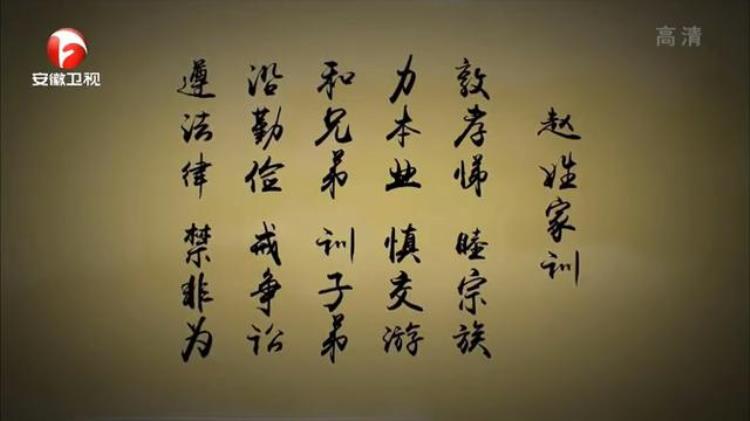 安徽卫视
高清
赵姓家训
敦孝悌 睦宗族
力本业 慎交游
和兄弟 训子弟
沿勤俭 戒争讼
遵法律 禁非为